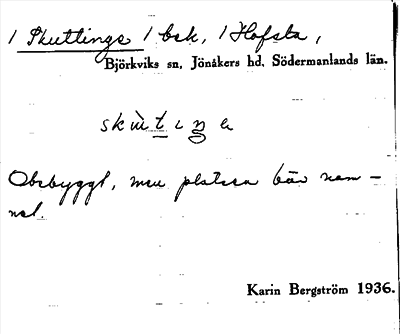 / Skuttinge / bsk, / Hofsta,
Björkviks sn, Jönåkers hd, Södermanlands län.
skùtiŋe
Obebyggt, men platsen bär nam-
net.
Karin Bergström 1936.